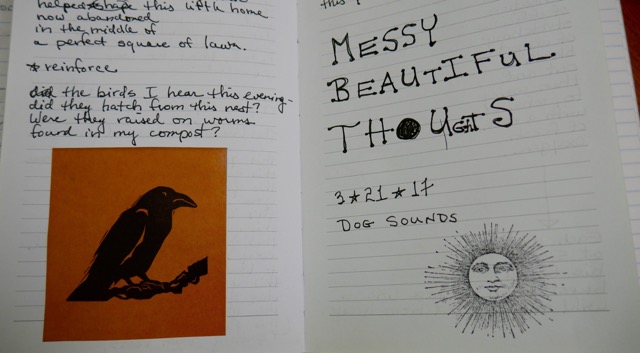 helped shape this little home
now abandoned
in the middle of
a perfect square of lawn.
* reinforce
did the birds I hear this evening-
did they hatch from this nest?
Were they raised on worms
found in my compost?
this
MESSY
BEAUTIFUL
THOUGHTS
3*21*17
DOG SOUNDS